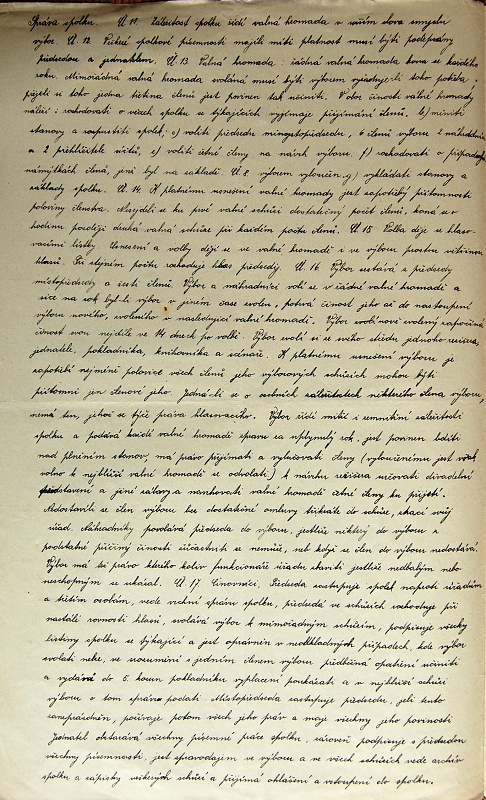 Správa spolku. Čl. 11. Záležitosti spolku řídí valná hromada v užším slova smyslu
výbor. Čl. 12. Veškeré spolkové písemnosti mají-li míti platnost musí býti podepsány
předsedou a jednatelem. Čl. 13. Valná hromada: řádná valná hromada koná se každého
roku. Mimořádná valná hromada svolána musí býti výborem vyžaduje-li toho potřeba
požádá-li o to jedna třetina členů jest povinen tak učiniti. V obor činnosti valné hromady
náleží: rozhodovati o všech spolku se týkajících vyjímaje přijímání členů. b) měniti
stanovy a rozpustiti spolek, c) voliti předsedu místopředsedu, 6 členů výboru 2 náhradníky
a 2 přehlížitele účtů, e) voliti čestné členy na návrh výboru, f) rozhodovati o případných
námitkách člena, jenž byl na základě Čl. 8. výborem vyloučen. g) vykládati stanovy a
základy spolku. Čl. 14. K platnému usnesení valné hromady jest zapotřebí přítomnosti
poloviny členstva. Nesejde-li se ku prvé valné schůzi dostatečný počet členů, koná se o
hodinu později druhá valná schůze při každém počtu členů. Čl. 15 Volba děje se hlaso-
vacími lístky. Usnesení a volby dějí se ve valné hromadě i ve výboru prostou většinou
hlasů. Při stejném počtu rozhoduje hlas předsedy. Čl. 16. Výbor sestává z předsedy
místopředsedy a šesti členů. Výbor a náhradníci volí se v řádné valné hromadě a
sice na rok byl-li výbor v jiném čase zvolen, potrvá činnost jeho až do nastoupení
výboru nového, zvoleného v následující valné hromadě. Výbor nově zvolený započíná
činnost svou nejdéle ve 14 dnech po volbě. Výbor volí si ze svého středu jednoho režiséra,
jednatele, pokladníka, knihovníka a scénáře. K platnému usnesení výboru je
zapotřebí nejméně polovice všech členů jeho výborových schůzích mohou býti
přítomni jen členové jeho. Jedná-li se o osobních záležitostech některého člena výboru,
nemá ten, jehož se týče práva hlasovacího. Výbor řídí vnitřní i zevnitřní záležitosti
spolku a podává každé valné hromadě zprávu za uplynulý rok, jest povinen bdíti
nad plněním stanov, má právo přijímati a vylučovati členy (vyloučenému jest však
volno k nejbližší valné hromadě se odvolati) k návrhu režiséra určovati divadelní
představení a jiné zábavy a navrhovati valné hromadě čestné členy ku přijetí.
Nedostaví-li se člen výboru bez dostatečné omluvy třikráte do schůze, ztrácí svůj
úřad. Náhradníky povolává předseda do výboru, jestliže některý do výboru z
podstatné příčiny činnosti súčastnit se nemůže, neb když se člen do výboru nedostává.
Výbor má též právo kteréhokoliv funkcionáře úřadu zbaviti jestliže nedbalým nebo
neschopným se ukázal. Čl. 17. Činovníci, Předseda zastupuje spolek naproti úřadům
a třetím osobám, vede vrchní správu spolku, předsedá ve schůzích rozhoduje při
nastalé rovnosti hlasů, svolává výbor k mimořádným schůzím, podpisuje všecky
listiny spolku se týkající a jest oprávněn v neodkladných případech, kde výbor
svolati nelze, ve srozumění s jedním členem výboru předběžná opatření učiniti
a vydání do 5. korun pokladníku vyplacení poukázati a v nejbližší schůzi
výboru o tom zprávu podati. Místopředseda zastupuje předsedu, jeli tento
zaneprázdněn, požívaje potom všech jeho práv a maje všechny jeho povinnosti
Jednatel obstarává všechny písemné práce spolku, zároveň podpisuje s předsedou
všechny písemnosti, jest zpravodajem ve výboru a ve všech schůzích vede archiv
spolku a zápisky veškerých schůzí a přijímá ohlášení o vstoupení do spolku.